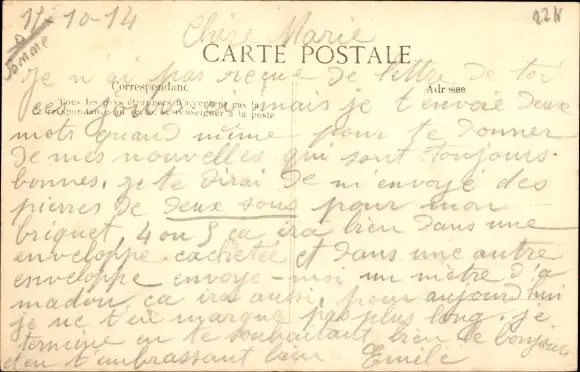 11-10-14
Chère Marie
22N
Somme
CARTE POSTALE
Je n'ai pas reçue de lettre de toi
Correspondance
Adresse
ces jours ci mais je t'envoie deux
Tous les pays étrangers n'acceptent pas la
Correspondance au recto. Se renseigner à la poste
mots quand même pour te donner
de mes nouvelles qui sont toujours
bonnes. je te dirai de m'envoyé des
pierres de deux sous pour mon
briquet, 4 ou 5 ça ira bien dans une
enveloppe cachetée et dans une autre
enveloppe envoye-moi un mètre d'a
madou, ça ira aussi, pour aujourd'hui
je ne t'en marque pas plus long. je
termine en te souhaitant bien le bonjour
et en t'embrassant bien Emile